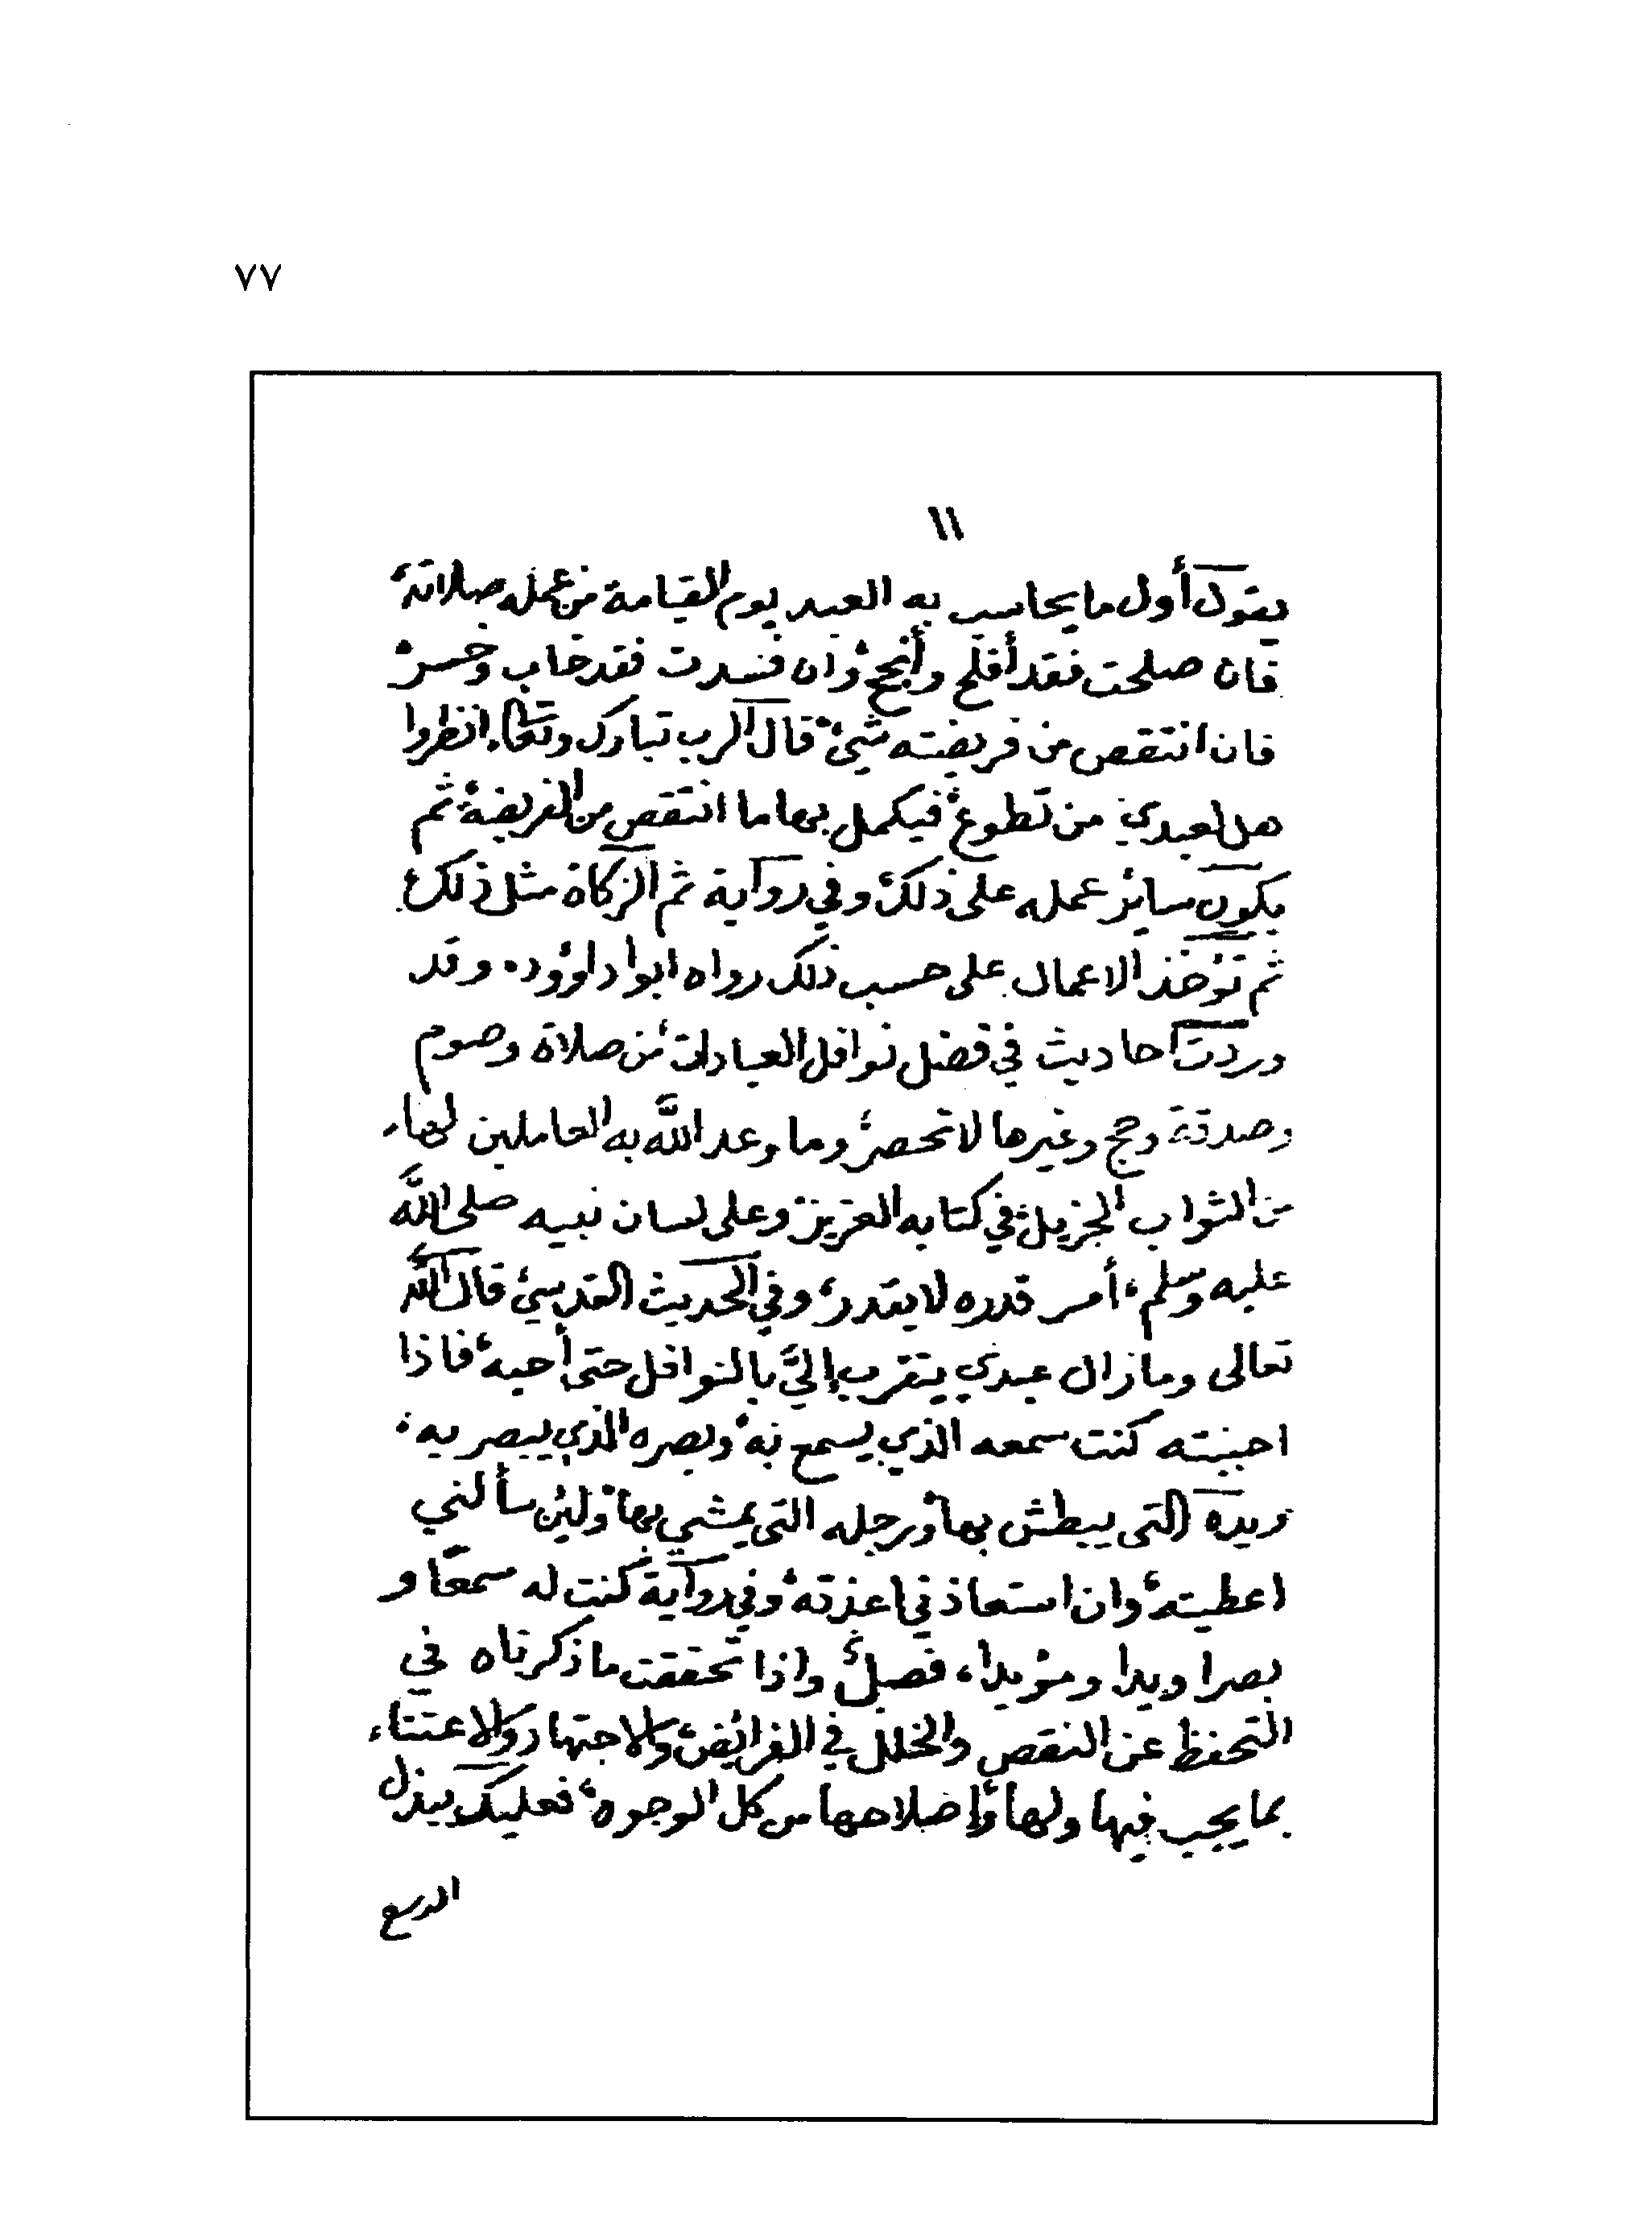 ٧٧
١١
يقول أول ما يحاسب به العبد يوم القيامة من عمله صلاته
فان صلحت فقد أفلح وأنجح وان فسدت فقد خاب وخسر
فان انتقص من فريضته شيئ قال الرب تبارك وتعالى انظروا
هل لعبدي من تطوع فيكمل بها ما انتقص من الفريضة ثم
يكون سائر عمله على ذلك وفي رواية ثم الزكاة مثل ذلك
ثم تؤخذ الاعمال على حسب ذلك رواه ابوا داوود. وقد
وردت احاديث في فضل نوافل العبادات من صلاة وصوم
وصدقة وحج وغيرها لا تحصر وما وعد الله به العاملين لها
من الثواب الجزيل في كتابه العزيز وعلى لسان نبيه صلى الله
عليه وسلم، أمر قدره لا يقدر، وفي الحديث القدسي قال الله
تعالى وما زال عبدي يتقرب إليَّ بالنوافل حتى أحبه، فاذا
احببته كنت سمعه الذي يسمع به، وبصره الذي يبصر به،
ويده التى يبطش بها، ورجله التى يمشي بها، ولئن سألني
اعطيته، وان استعاذني اعذته، وفي رواية كنت له سمعًا و
بصرا ويدا ومؤيدا، فصل، واذا تحققت ما ذكرناه في
التحفظ عن النقص والخلل في الفرائض، والاجتهاد والاعتناء
بما يجب فيها ولها، وإصلاحها من كل الوجوه، فعليك ببذل
الوسع